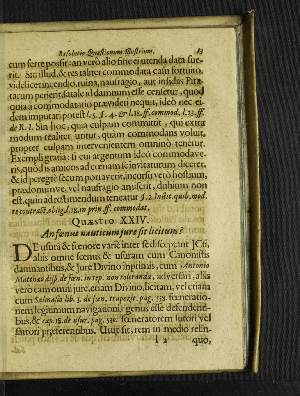 Resolutio Quæstionum Illustrium. 83
cum ferre possit: an vero alio fine ei utenda data fue-
rit. Sit illud, & res taliter commodata casu fortuito,
videlicet incendio, ruina, naufragio, aut insidiis Pira-
tarum perierit, fatale id damnum esse censetur, quod
quia à commodatario prævideri nequit, ideò nec ei-
dem imputari potest l. 5. §. 4. & l. 18. ff. commod. l. 23. ff.
de R. I. Sin hoc, quia culpam committit, qui extra
modum realiter utitur, quàm commodans voluit,
propter culpam intervenientem omninò tenetur.
Exempli gratia: si cui argentum ideò commodave-
ris, quod is amicos ad cœnam se invitaturum diceret,
& id peregrè secum portaverit, incursu vero hostium,
prædonumve, vel naufragio amiserit, dubium non
est, quin ad restituendum teneatur §. 2. Instit. quib. mod.
re contrah. oblig. l. 18. in prin. ff. commodat.
QUÆSTIO XXIV.
An fœnus nauticum jure sit licitum?
De usura & fœnore varie inter se disceptant JCti,
aliis omne fœnus & usuram cum Canonistis
damnantibus, & Jure Divino inprimis, cum Antonio
Matthæo disp. de fœn. in rep. non tolerando, adversis; aliis
vero tam omni jure, etiam Divino, licitam, vel etiam
cum Salmasio lib. 3. de fœn. trapezit. pag. 538. fœneratio-
nem legitimum navigationis genus esse defendenti-
bus, & cap. 18. de usur. pag. 530. fœneratorem sutori vel
sartori præferentibus. Utut sit, rem in medio relin-
l 2 quo,